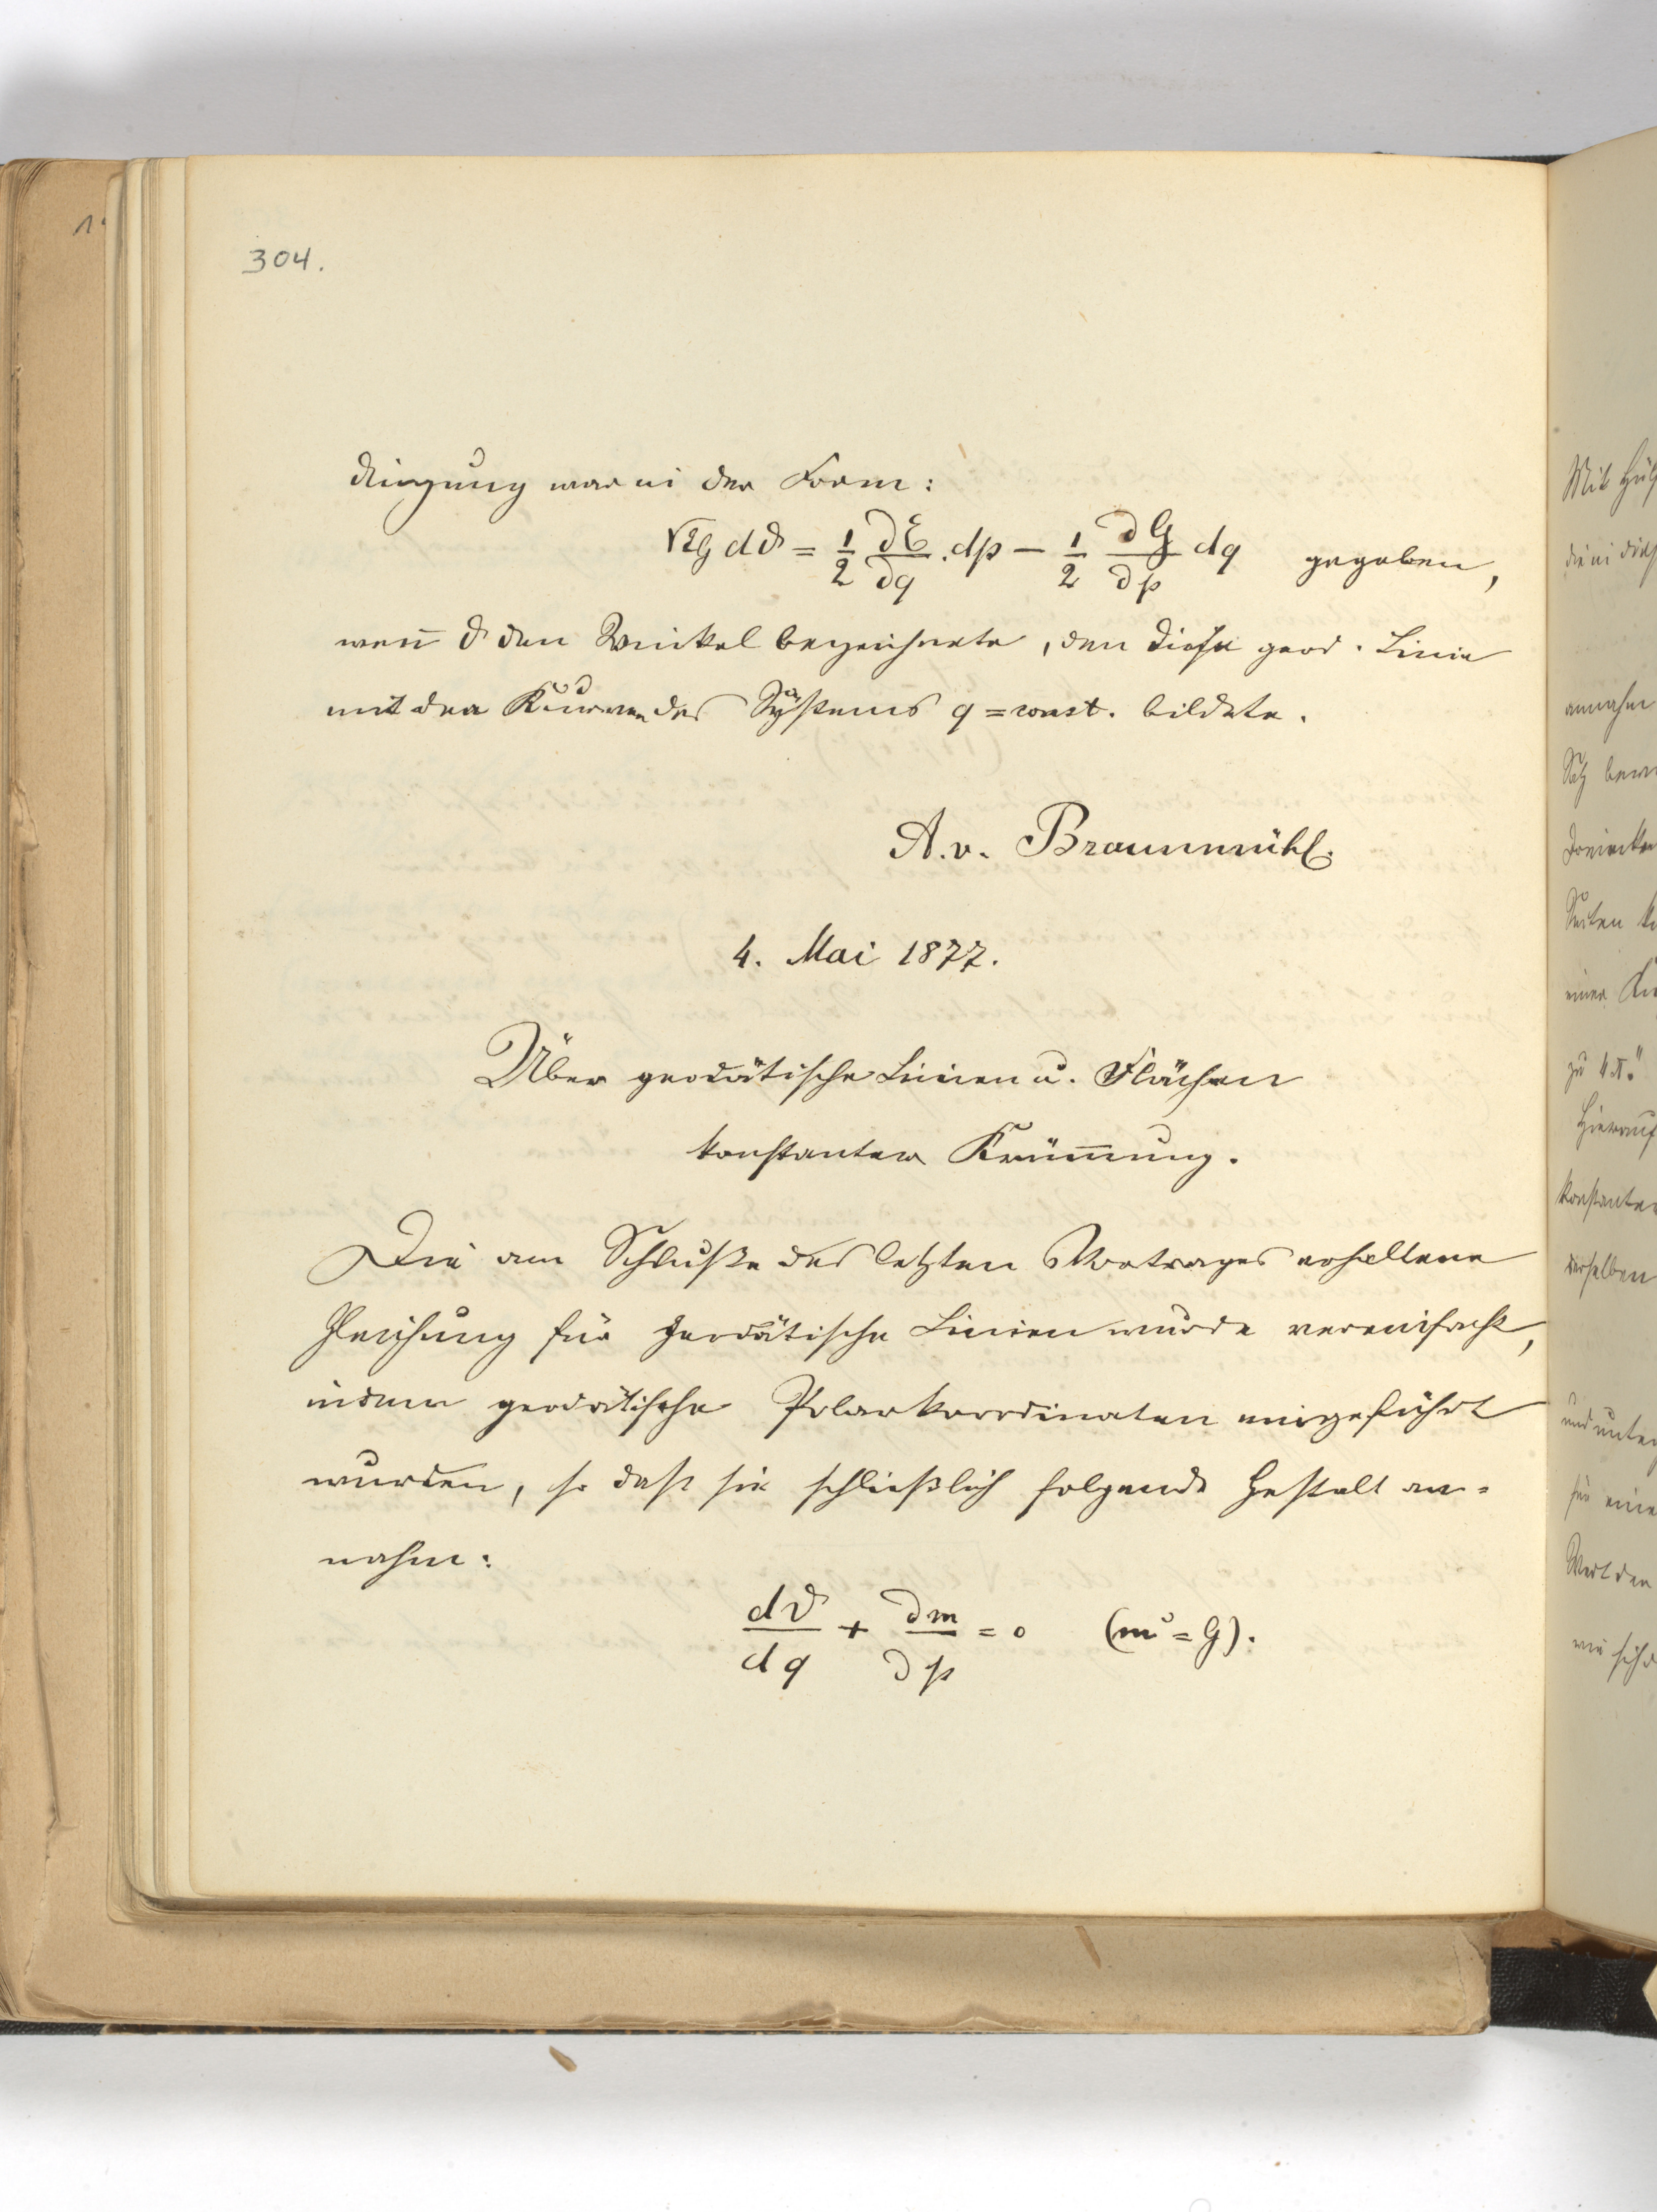 304.
dingung war in der Form:
√EG dϑ = 1/2 ∂E/∂q . dp − 1/2 ∂G/∂p dq gegeben,
wen̄ ϑ den Winkel bezeichnete, den diese geod. Linie
mit den Kurven des Systems q = const. bildete.
A. v. Braunmühl.
4. Mai 1877.
Über geodätische Linien u. Flächen
konstanter Krüm̄ung.
Die am Schluße des letzten Vortrages erhaltene
Gleichung für geodätische Linien wurde vereinfacht,
indem geodätische Polarkoordinaten eingeführt
wurden, so daß sie schließlich folgende Gestalt an-
nahm:
dϑ/dq + ∂m/∂p = 0 (m² = G).
Mit
annahm
Satz
Seiten
einer
zu 4π."
Hierauf
konstanter
derselben
und unter
für eine